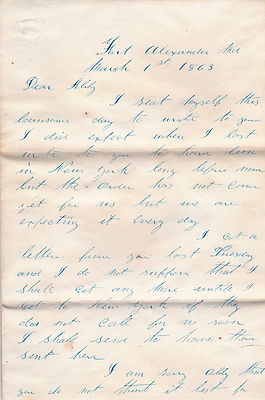 Fort Alexander Md
March 1st 1863
Dear Abby
I seat myself this
lonesome day to write to you
I did expect when I last
wrote to you to have been
in New York long before now
but the order has not come
yet for us but we are
expecting it every day
I got a
letter from you last Tuesday
and I do not suppose that I
shall get any more untill I
get to New York if they
does not call for us soon
I shall send to have them
sent here
I am sorry Abby that
you do not think it best for